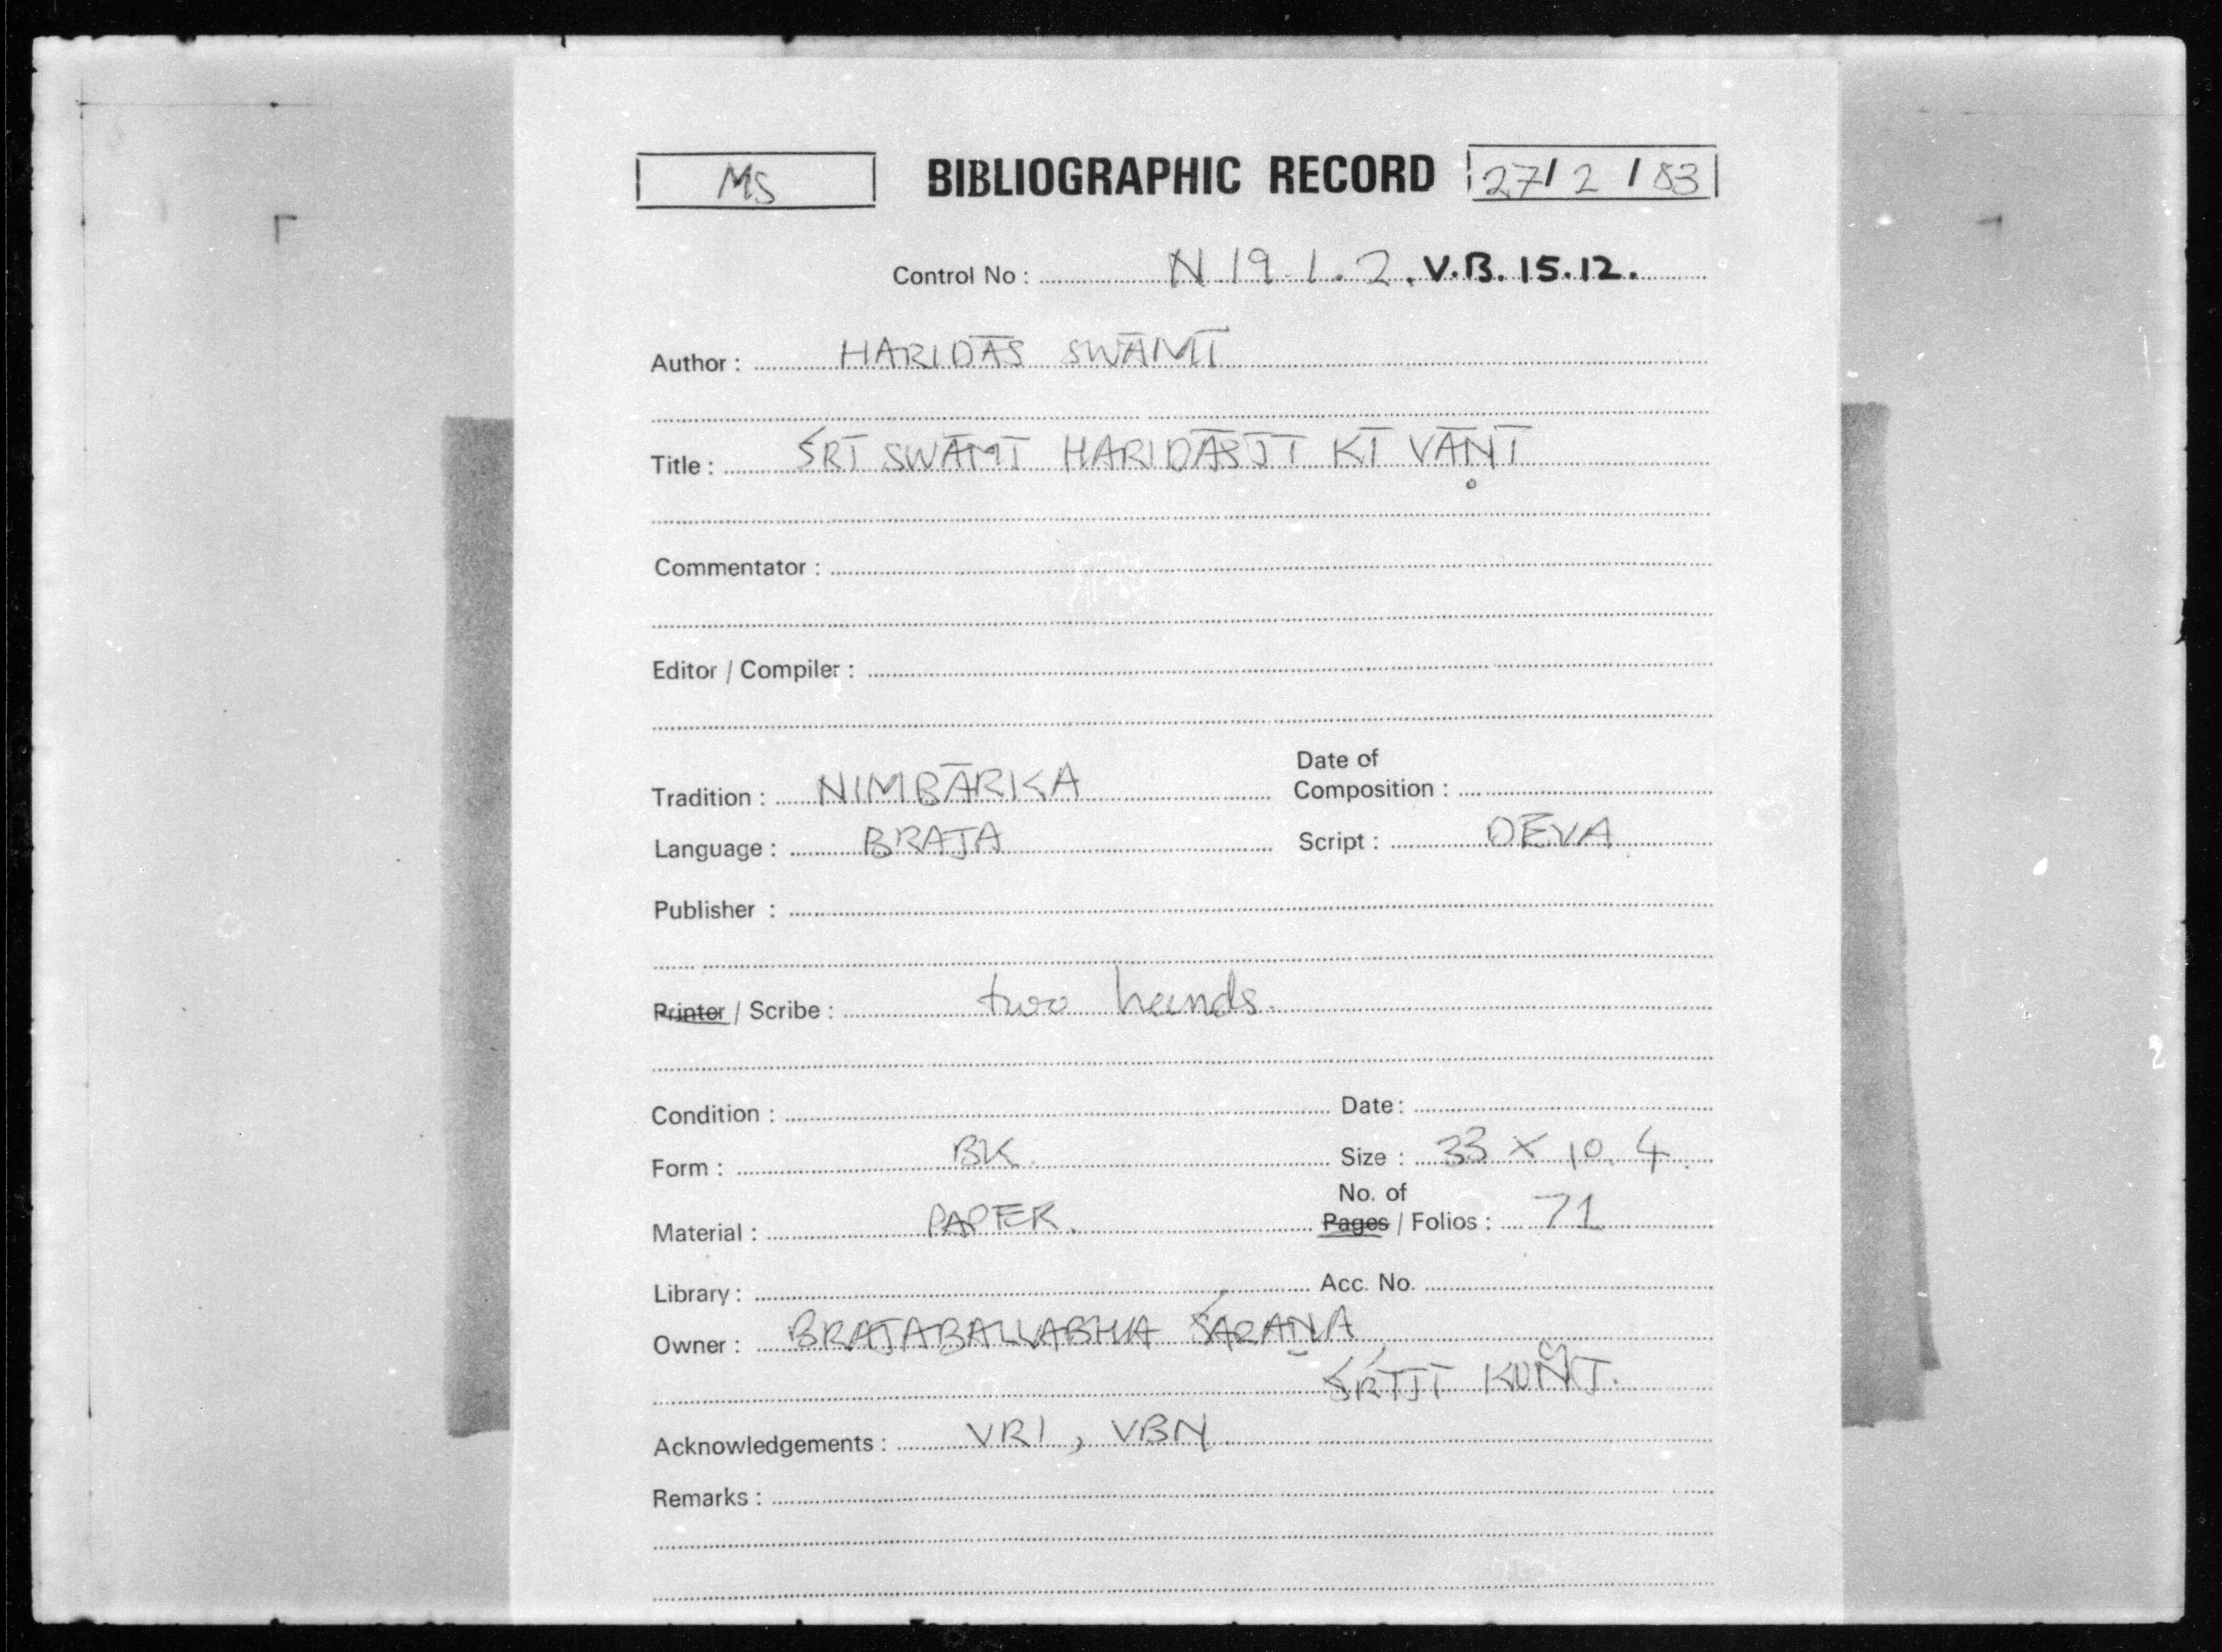 MS BIBLIOGRAPHIC RECORD 27/2/83
Control No : N 19.1.2. V.B. 15.12.
Author : HARIDĀS SWĀMĪ
Title : ŚRĪ SWĀMĪ HARIDĀSJĪ KĪ VĀṆĪ
Commentator :
Editor / Compiler :
Date of
Tradition : NIMBĀRKA Composition :
Language : BRAJA Script : DEVA
Publisher :
Printer / Scribe : two hands.
Condition : Date :
Form : BK. Size : 33 X 10.4.
No. of
Material : PAPER. Pages / Folios : 71
Library : Acc. No.
Owner : BRAJABALLABHA ŚARAṆA,
ŚRĪJĪ KUÑJ.
Acknowledgements : VRI, VBN
Remarks :